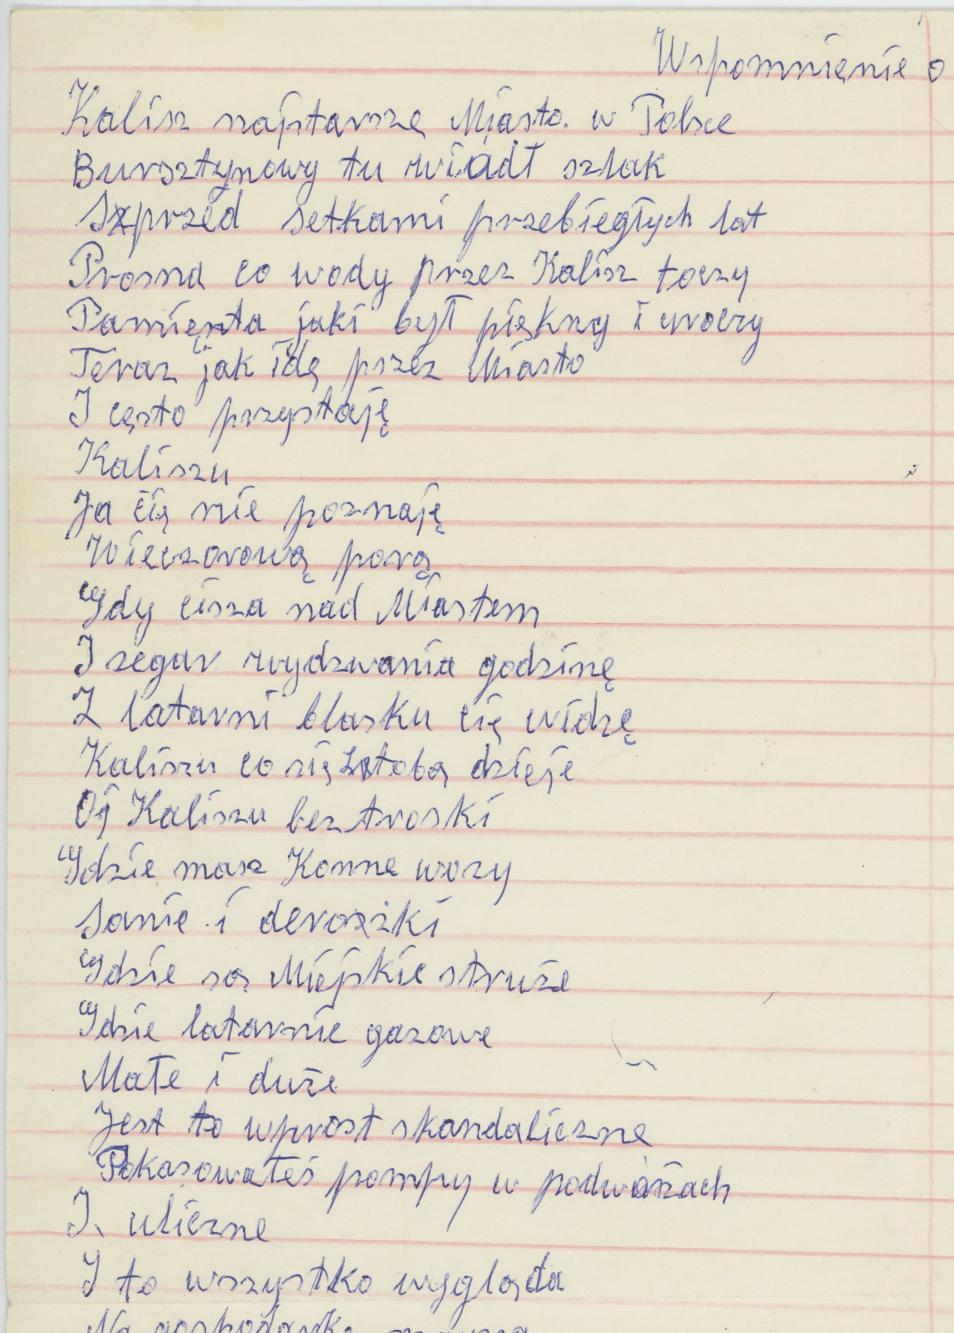 Wspomnięnie o
Kalisz najstarszę Miasto. w Polsce
Bursztynowy tu wiódł szlak
Sprzed setkami przebiegłych lat
Prosna co wody przez Kalisz toczy
Pamięnta jaki był piękny i uroczy
Teraz jak idę przez Miasto
I cęsto przystaję
Kaliszu
Ja cię nie poznaję
Wieczorową porą
Gdy cisza nad Miastem
I zegar wydzwania godzinę
Z latarni blasku cię widzę
Kaliszu co się z tobą dzieje
Oj Kaliszu beztroski
Gdzie masz Konne wozy
Sanie i derożki
Gdzie są Miejskie struże
Gdzie latarnie gazowe
Małe i duże
Jest to wprost skandaliczne
Pokasowałeś pompy w podwóżach
I. uliczne
I to wszystko wygląda
Na gospodarkę